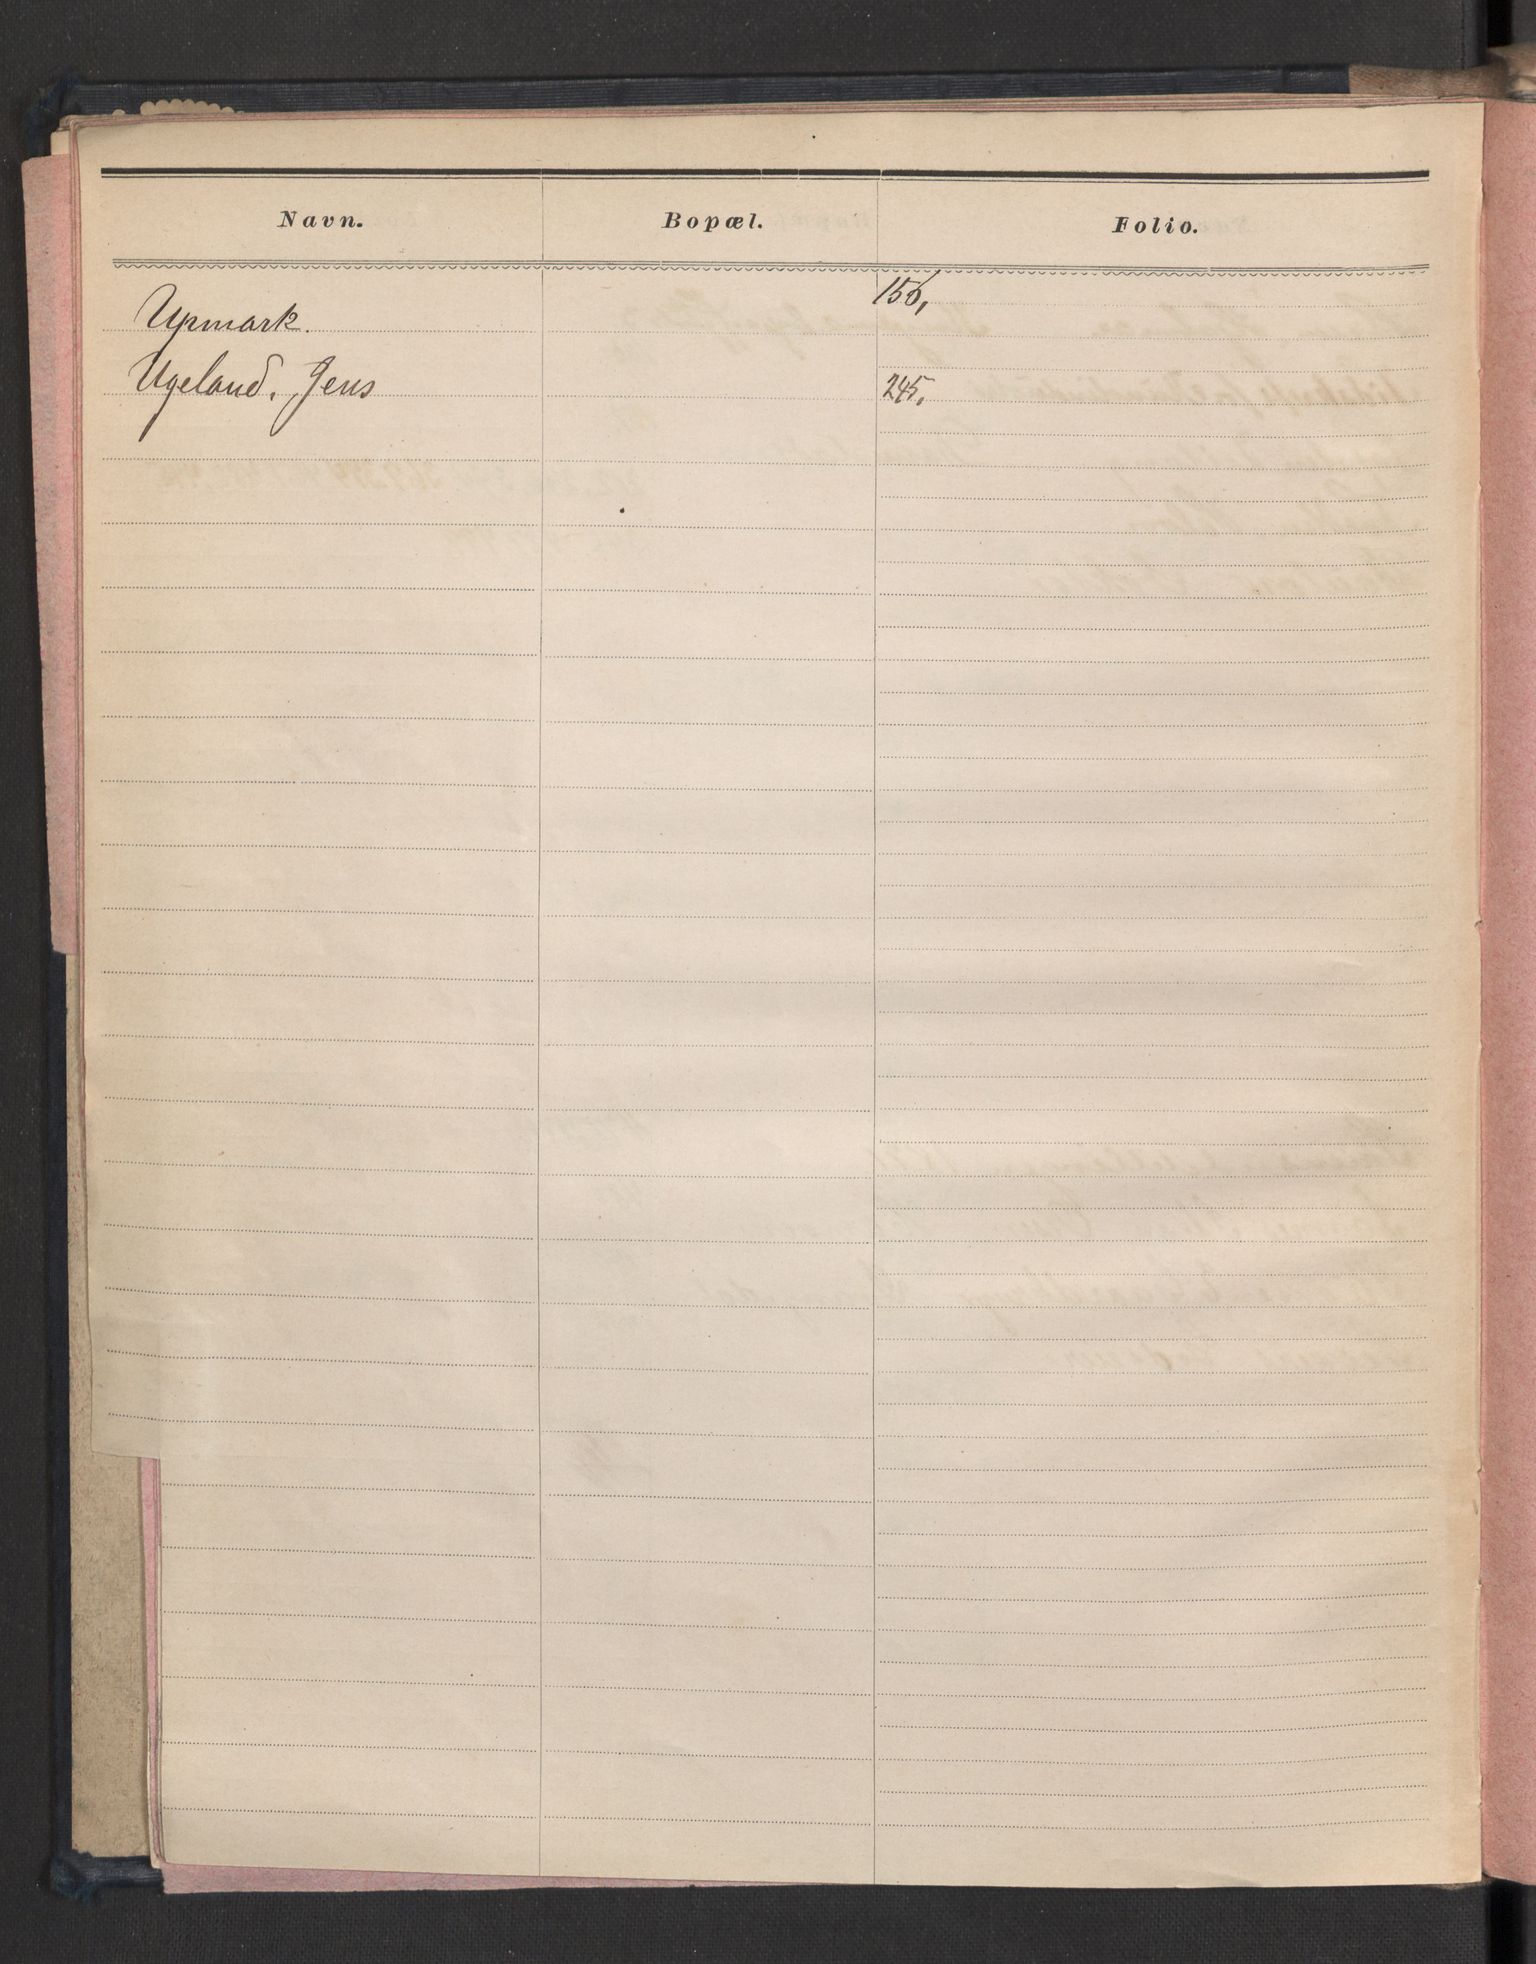 Navn. Bopæl. Folio.
Upmark. 156,
Ugeland, Jens 245,